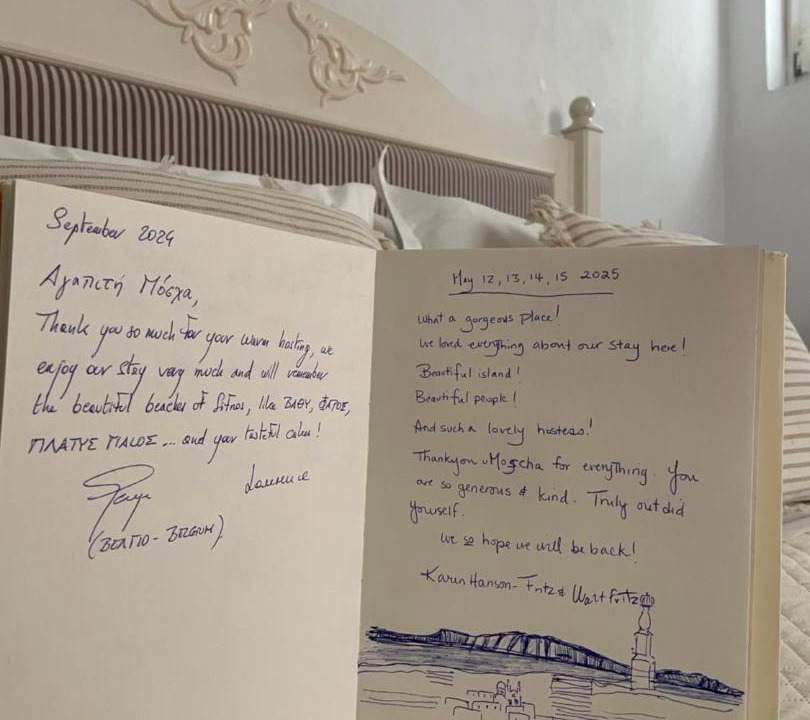 September 2024
Αγαπιτή Μόσχα,
Thank you so much for your warm hosting, we
enjoy our stay very much and will remember
the beautiful beaches of Sifnos, like ΒΑΘΥ, ΦΑΡΟΣ,
ΠΛΑΤΥΣ ΓΙΑLOΣ ... and your tasteful cakes!
Laurence
(ΒΕΛΓΙΟ - BELGIUM)
May 12, 13, 14, 15 2025
What a gorgeous place!
We loved everything about our stay here!
Beautiful island!
Beautiful people!
And such a lovely hostess!
Thankyou Moscha for everything. You
are so generous & kind. Truly out did
yourself.
We so hope we will be back!
Karen Hanson-Fritz & Walt Fritz